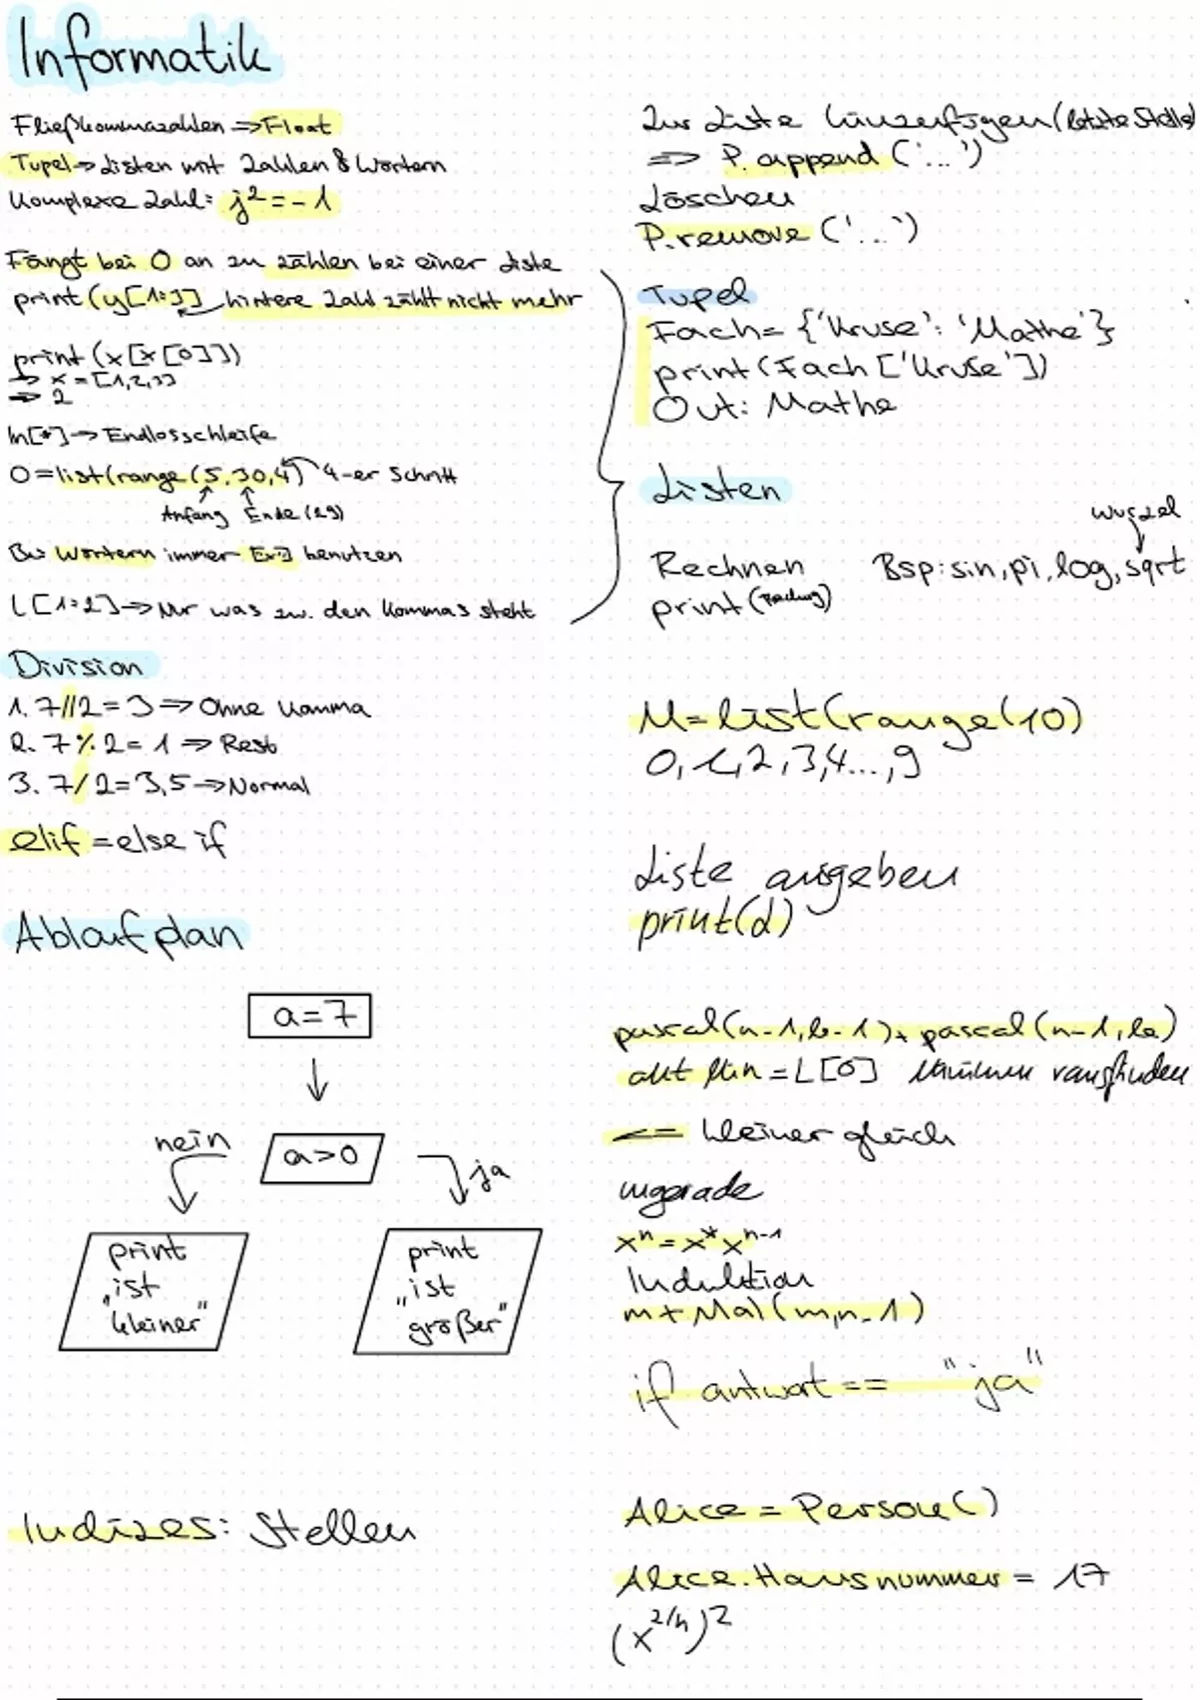 Informatik
Fließkommazahlen => Float
Tupel => Listen mit Zahlen & Wörtern
Komplexe Zahl: j² = -1
Fängt bei 0 an zu zählen bei einer Liste
print(y[1:3] hintere Zahl zählt nicht mehr
print(x[x[0]])
=> x = [1,2,3]
=> 2
In[*] -> Endlosschleife
O = list(range(5,30,4) 4-er Schritt
Anfang Ende (29)
Bei Wörtern immer benutzen
L[1:2] -> Nur was zw. den Kommas steht
Division
1. 7//2 = 3 => Ohne Komma
2. 7 % 2 = 1 => Rest
3. 7/2 = 3,5 => Normal
elif = else if
Ablaufplan
a = 7
nein
a > 0
ja
print
„ist
kleiner"
print
„ist
größer"
Indizes: Stellen
Zur Liste (letzte Stelle)
=> P.append ('...')
Löschen
P.remove ('...')
Tupel
Fach = {'Kruse': 'Mathe'}
print(Fach['Kruse'])
Out: Mathe
Listen
Wurzel
Rechnen Bsp: sin, pi, log, sqrt
print(Rechnung)
M = list(range(10)
0, 1, 2, 3, 4..., 9
Liste ausgeben
print(L)
pascal(n-1, k-1) + pascal(n-1, k)
akt Min = L[0] Minimum rausfinden
<= kleiner gleich
ungerade
xⁿ = x * xⁿ⁻¹
Induktion
m + Mal(m,n-1)
if antwort == "ja"
Alice = Person()
Alice.Hausnummer = 17
(x^2/n)²